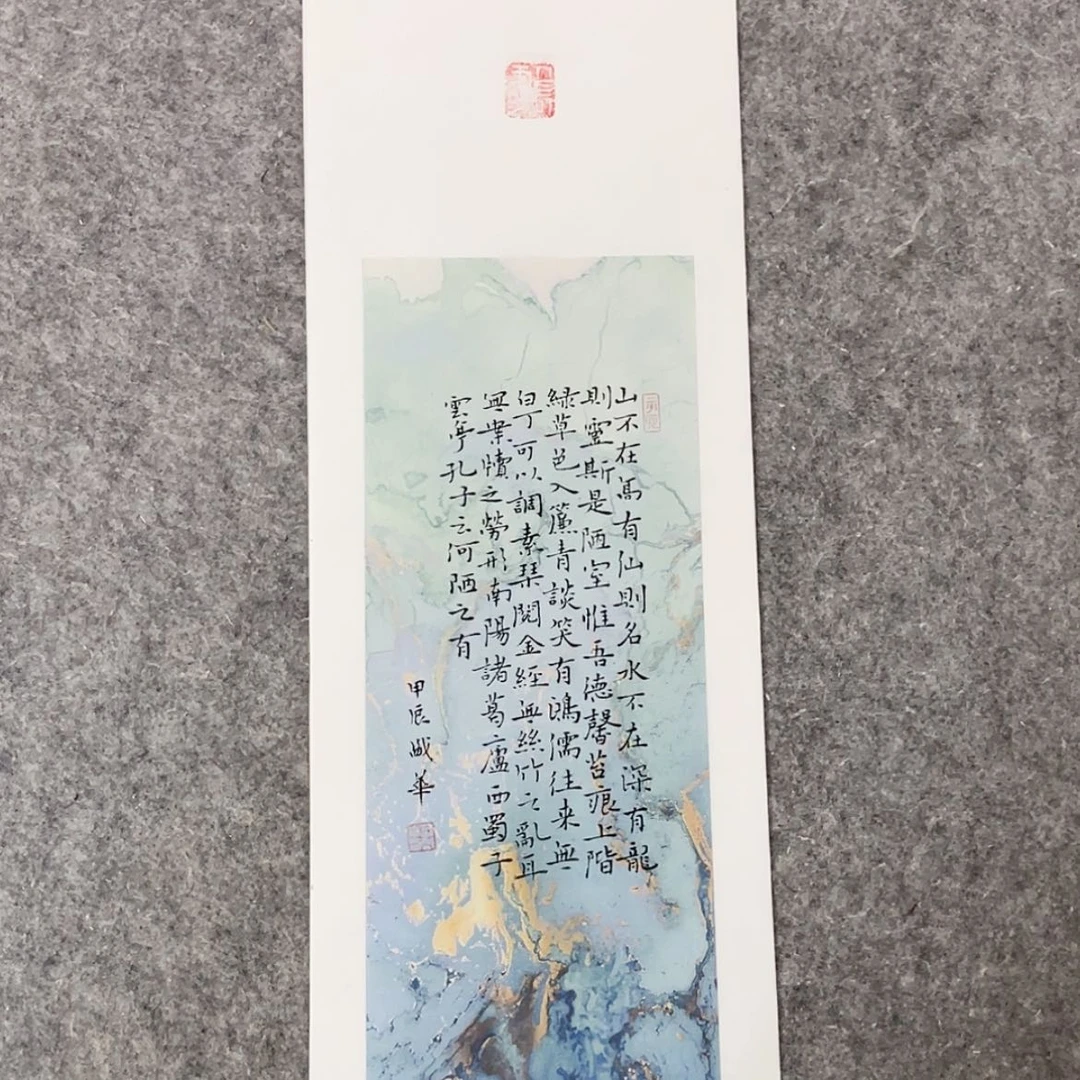 山不在高有仙則名水不在深有龍
則靈斯是陋室惟吾德馨苔痕上階
綠草色入簾青談笑有鴻濡往来無
白丁可以調素琴閱金經無絲竹之亂耳
無案牘之勞形南陽諸葛廬西蜀子
雲亭孔子云何陋之有
甲辰 華